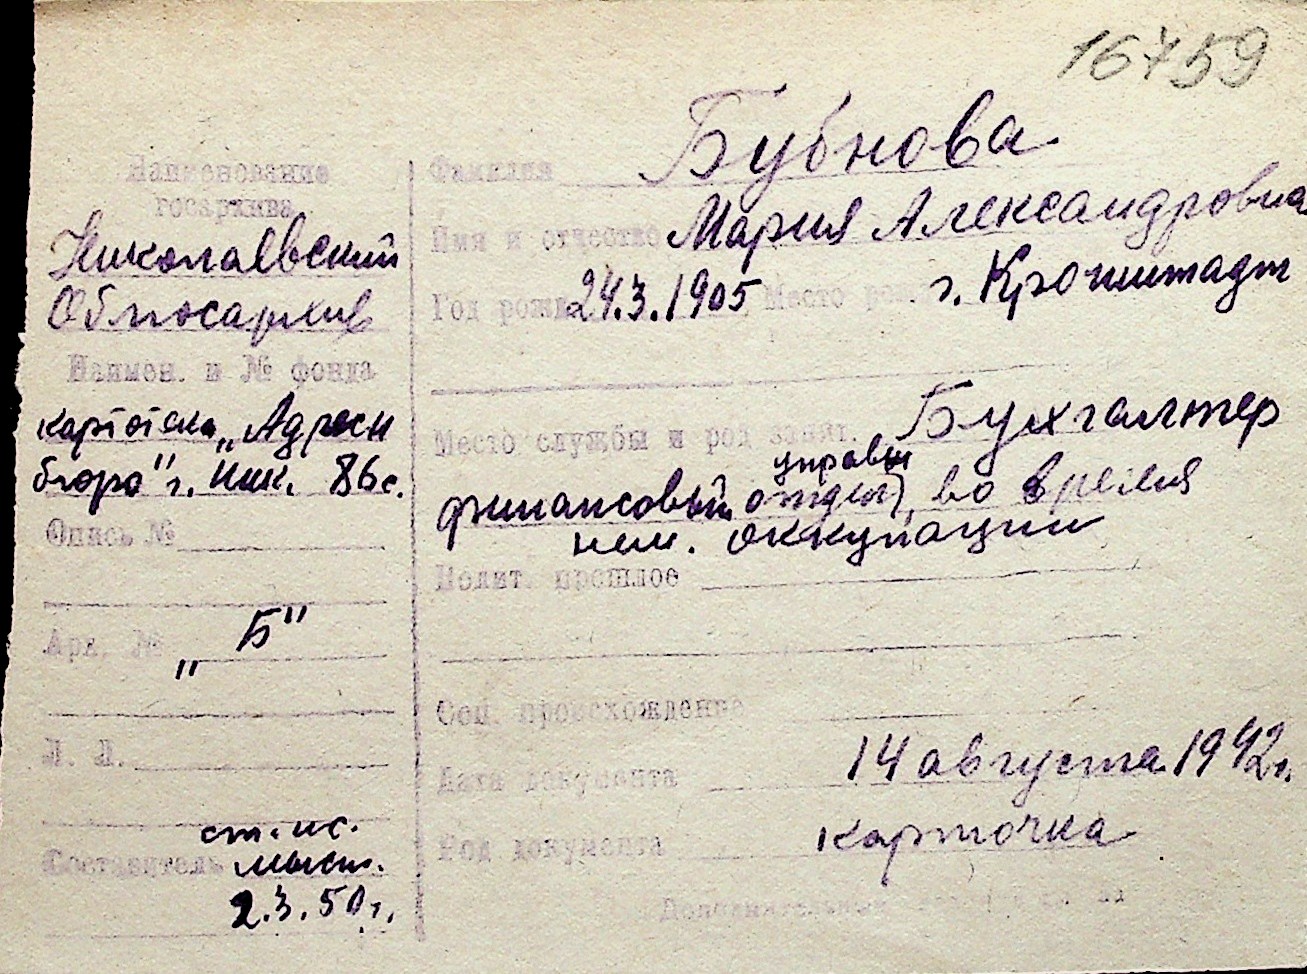 16759
Наименование
госархива
Николаевский
Облгосархив
Наимен. и № фонда
картотека „Адресн
бюро" г. Ник. 86с.
Опись №
Арх. №
„Б"
Л. Л.
ст. ис.
Составитель
2.3.50г.
Фамилия Бубнова
Имя и отчество Мария Александровна
Год рожд 24.3.1905 Место г. Кронштадт
Место службы и род занят. Бухгалтер
управы
финансовый отдел, во время
нем. оккупации
Полит. прошлое
Соц. происхождение
Дата документа 14 августа 1942г.
Род документа карточка
Дополнительные